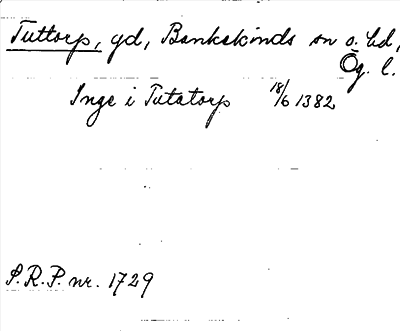 Tuttorp, gd, Bankekinds sn o. hd,
Ög. l.
Inge i Tutatorp 18/6 1382
S.R.P. nr. 1729